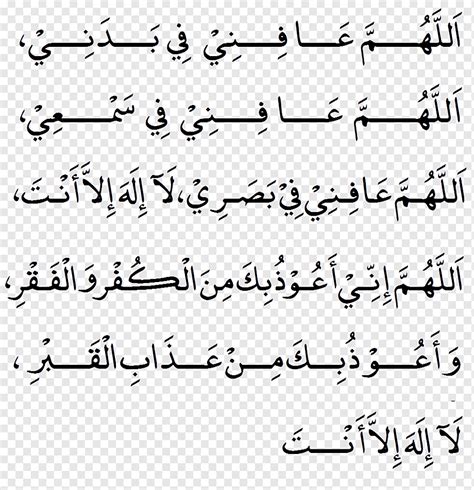 اَللَّهُمَّ عَافِنِيْ فِي بَدَنِيْ،
اَللَّهُمَّ عَافِنِيْ فِي سَمْعِيْ،
اَللَّهُمَّ عَافِنِيْ فِيْ بَصَرِيْ، لَآ إِلَهَ إِلاَّ أَنْتَ،
اَللَّهُمَّ إِنِّيْ أَعُوْذُ بِكَ مِنَ الْكُفْرِ وَ الْفَقْرِ،
وَ أَعُوْذُ بِكَ مِنْ عَذَابِ الْقَبْرِ،
لَآ إِلَهَ إِلاَّ أَنْتَ